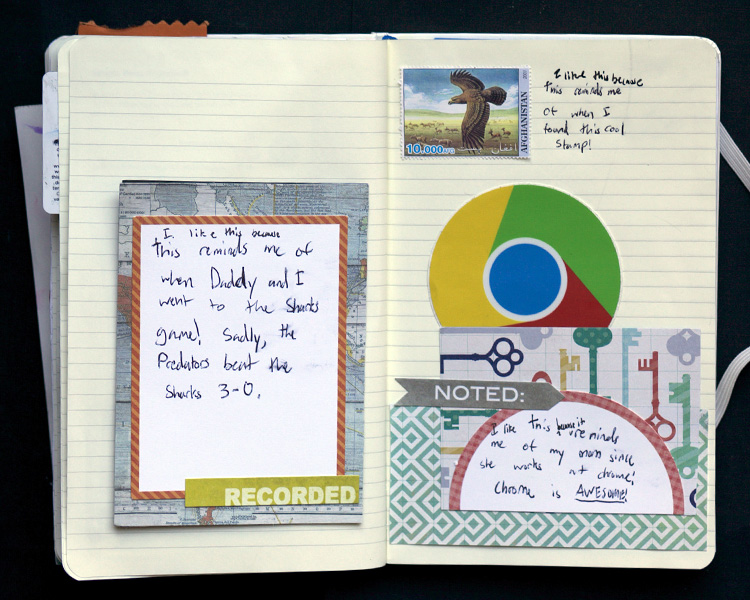 I like this because
this reminds me of
when Daddy and I
went to the Sharks
game! Sadly, the
Predators beat the
Sharks 3-0.
RECORDED
10.000 AFG
افغانستان پست
AFGHANISTAN
I like this because
this reminds me
of when I
found this cool
stamp!
NOTED:
I like this because it reminds
me of my mom since
she works at chrome!
Chrome is AWESOME!